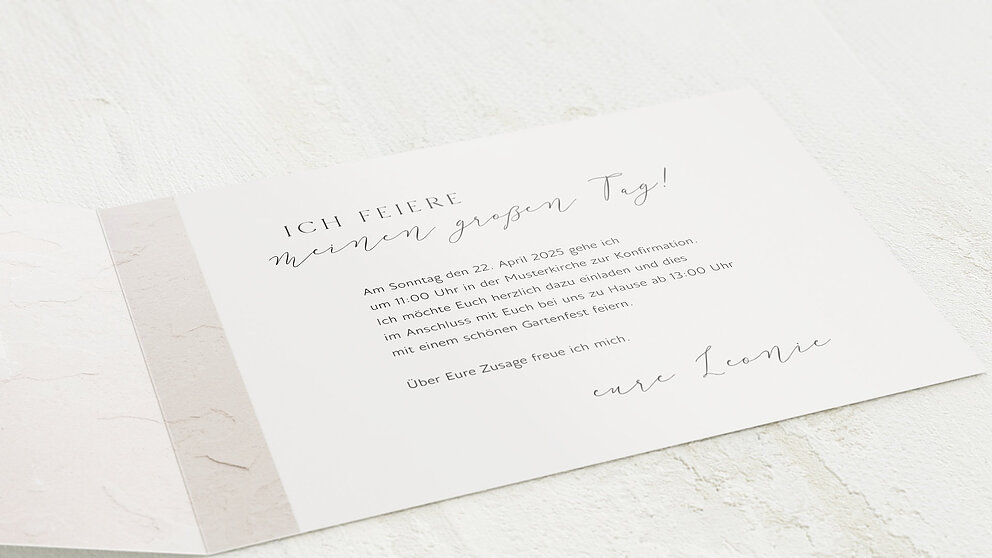 ICH FEIERE
meinen großen Tag!
Am Sonntag den 22. April 2025 gehe ich
um 11:00 Uhr in der Musterkirche zur Konfirmation.
Ich möchte Euch herzlich dazu einladen und dies
im Anschluss mit Euch bei uns zu Hause ab 13:00 Uhr
mit einem schönen Gartenfest feiern.
Über Eure Zusage freue ich mich.
eure Leonie